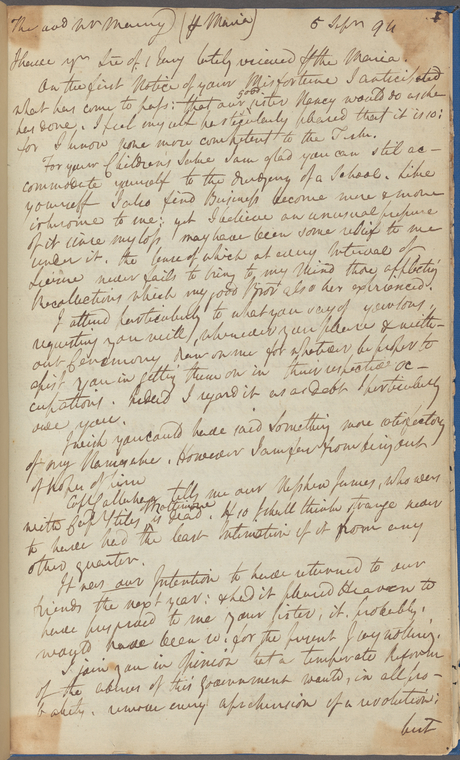 5 Sepr 94
I have yrs of 1 Augt lately received ⅌ the Maria.
On the first Notice of your Misfortune I anticipated
what has come to pass: that our good sister Nancy would do as she
has done. I feel myself particularly pleased that it is so;
for I know none more competent to the Task.
For your Childrens Sake I am glad you can still ac-
commodate yourself to the drudgery of a School. Like
yourself I also find Business become more & more
irksome to me; yet I believe an unusual pressure
of it since my loss may have been some relief to me
under it. the cause of which at every Interval of
Leisure never fails to bring to my Mind those affecting
Recollections which my good Bror also has experienced.
I attend particularly to what you say of your sons,
requesting you will, whenever you please & with-
out Ceremony draw on me for whatever be proper to
assist you in getting them on in their respective oc-
cupations. Indeed I regard it as a Debt I particularly
owe you.
I wish you could have said something more satisfactory
of my Namesake. However I am far from being out
of hopes of him
Capt tells me our Nephew James, who was
with Capt Stiles is dead. If so I shall think strange never
to have had the least Intimation of it from any
other quarter.
It was our Intention to have returned to our
friends the next year: & had it pleased Heaven to
have preserved to me your Sister, it probably
would have been so: for the present I say nothing.
I join you in Opinion that a temperate Reform
of the abuses of this government would, in all pro-
bability, remove every apprehension of a revolution;
but